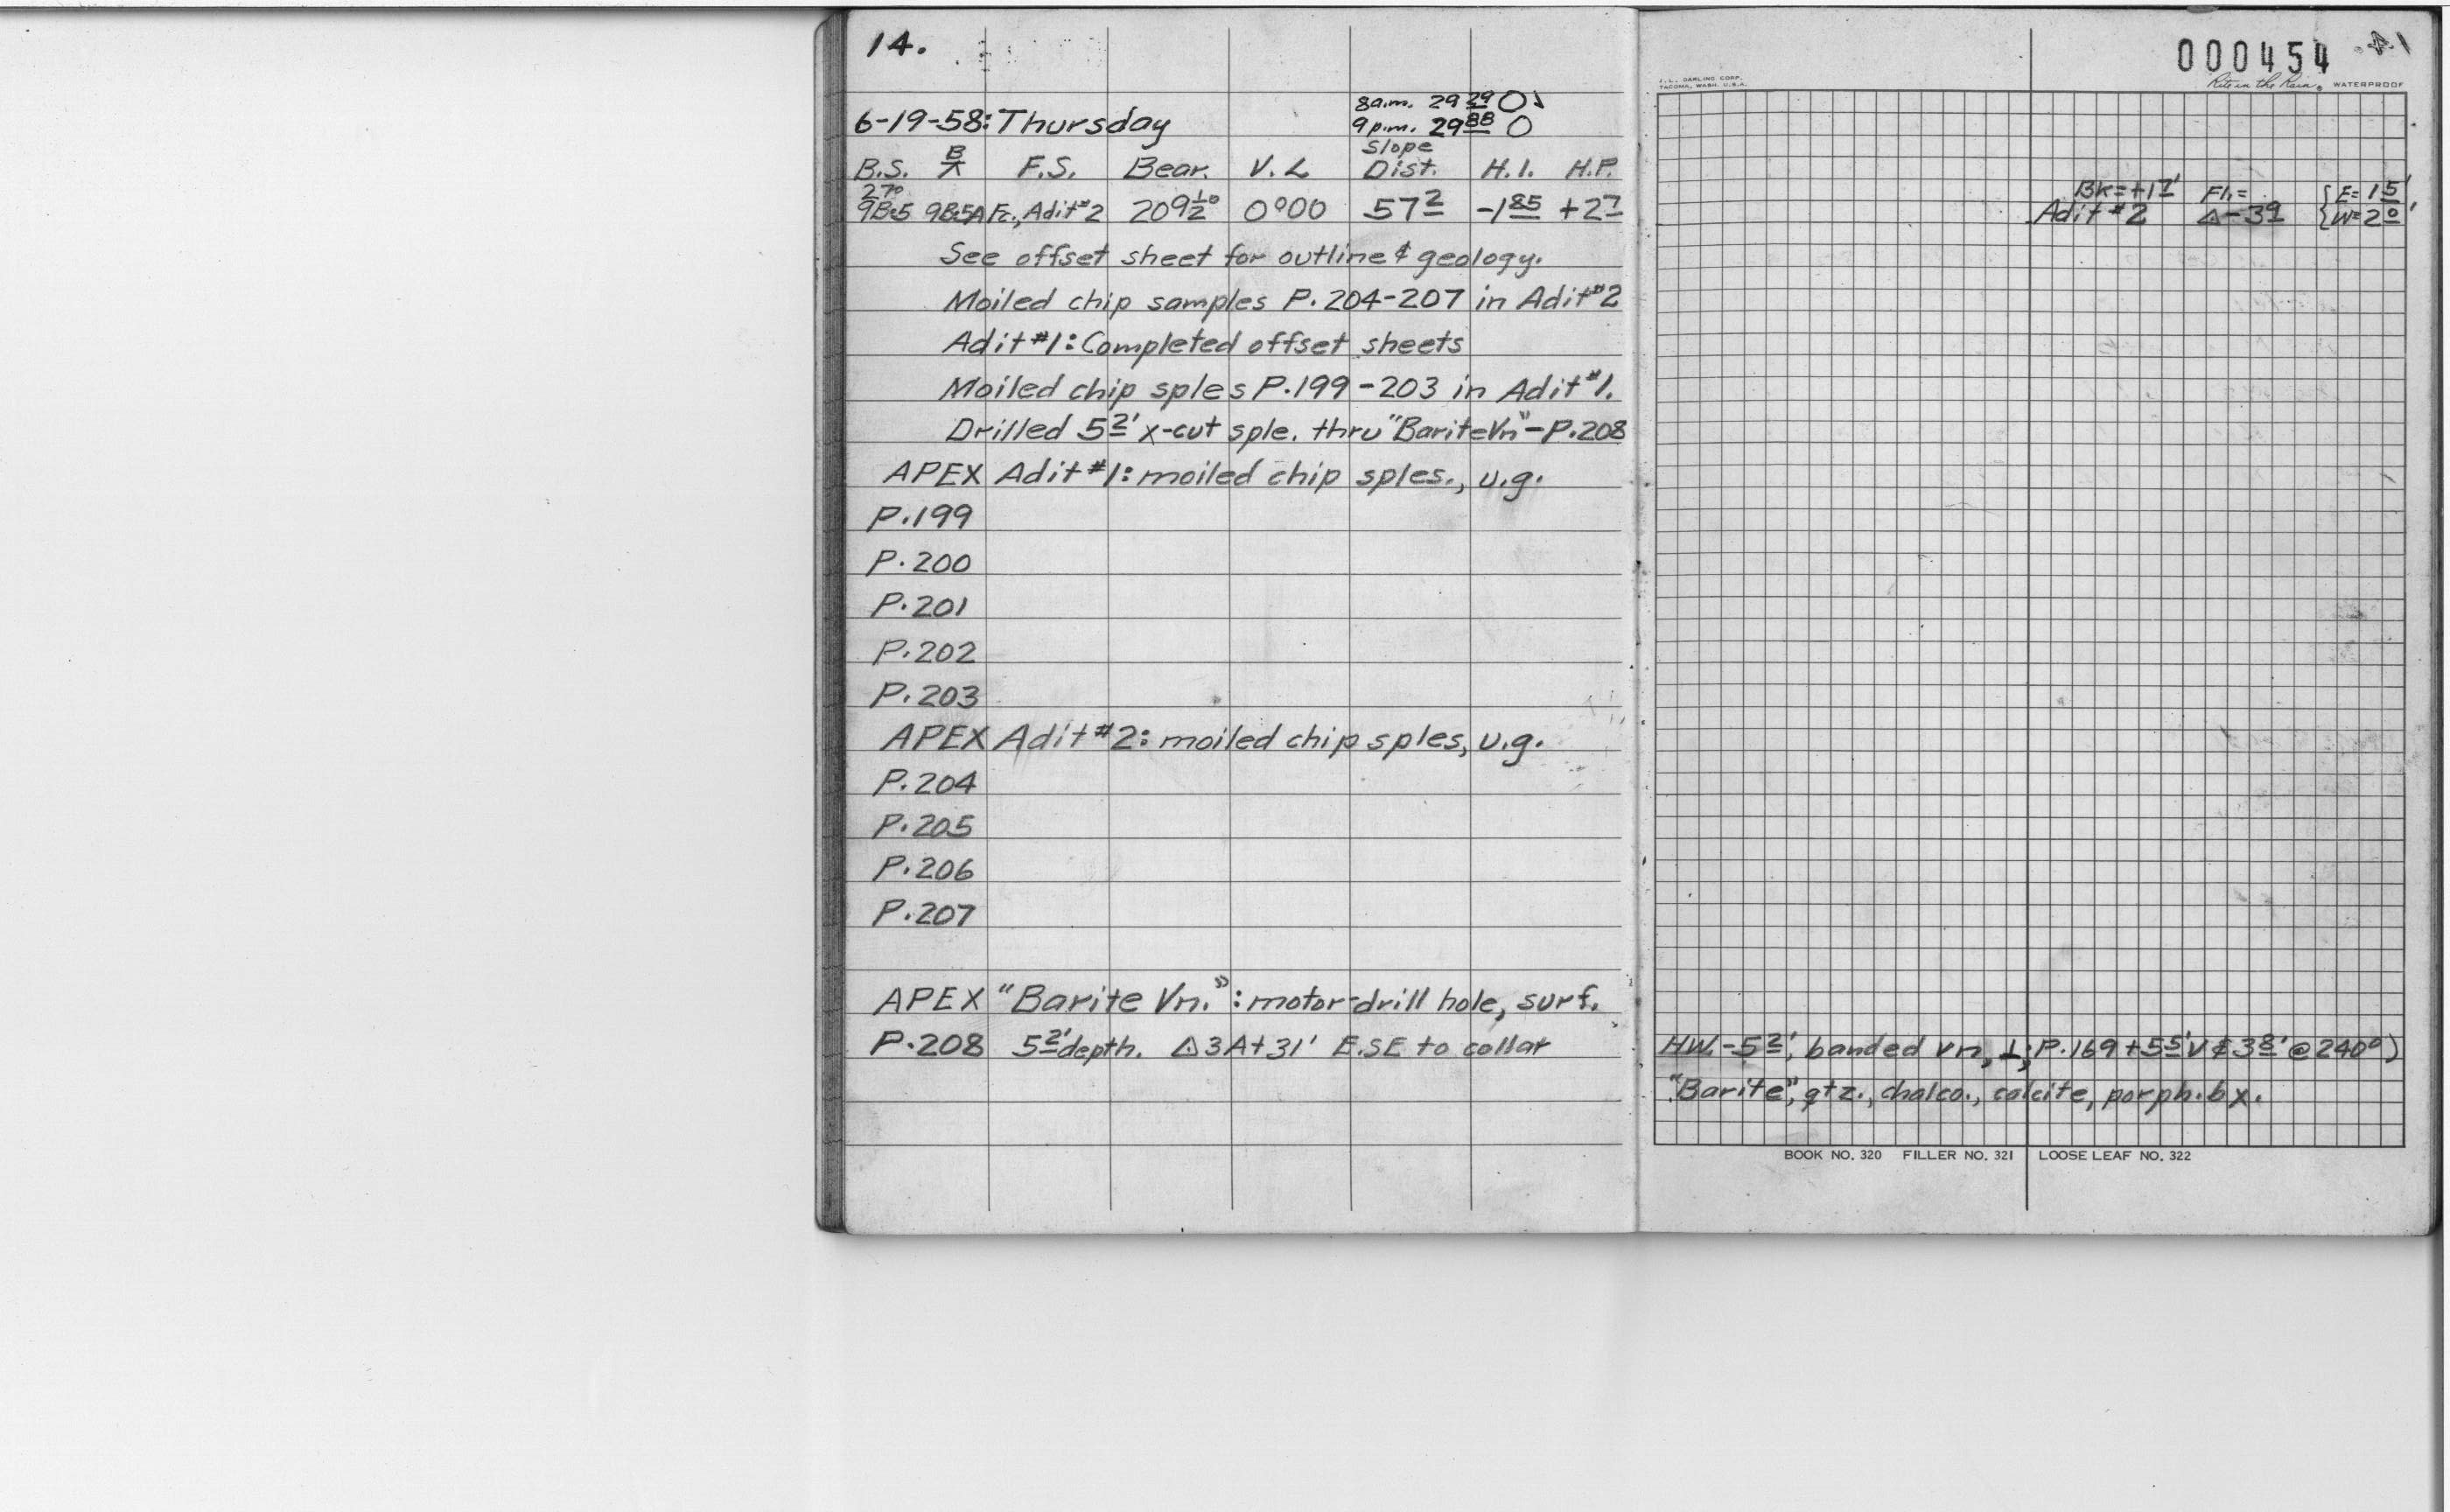 14.
8a.m. 29 29
6-19-58: Thursday 9p.m. 29 88
Slope
B.S. F.S. Bear. V.∠ Dist. H.I. H.P.
270
9B:5 9B:5A Fc., Adit #2 209 1/2° 0°00 57 2 -1 85 +2 7
See offset sheet for outline & geology.
Moiled chip samples P. 204-207 in Adit #2
Adit #1: Completed offset sheets
Moiled chip sples P. 199-203 in Adit #1.
Drilled 5 2' x-cut sple. thru "Barite Vn" - P. 208
APEX Adit #1: moiled chip sples., u.g.
P. 199
P. 200
P. 201
P. 202
P. 203
APEX Adit #2: moiled chip sples, u.g.
P. 204
P. 205
P. 206
P. 207
APEX "Barite Vn.": motor-drill hole, surf.
P. 208 5 2' depth. △ 3A + 31' E.SE to collar
000454
J. L. DARLING CORP.
TACOMA, WASH. U.S.A.
Rite in the Rain WATERPROOF
Bk = +1 7' Fl. = { E = 1 5'
Adit #2 △ - 3 9 { W = 2 0'
HW. - 5 2', banded vn, ⊥; P. 169 + 5 5' V & 3 8' @ 240°)
"Barite", qtz., chalco., calcite, porph. bx.
BOOK NO. 320 FILLER NO. 321 LOOSE LEAF NO. 322